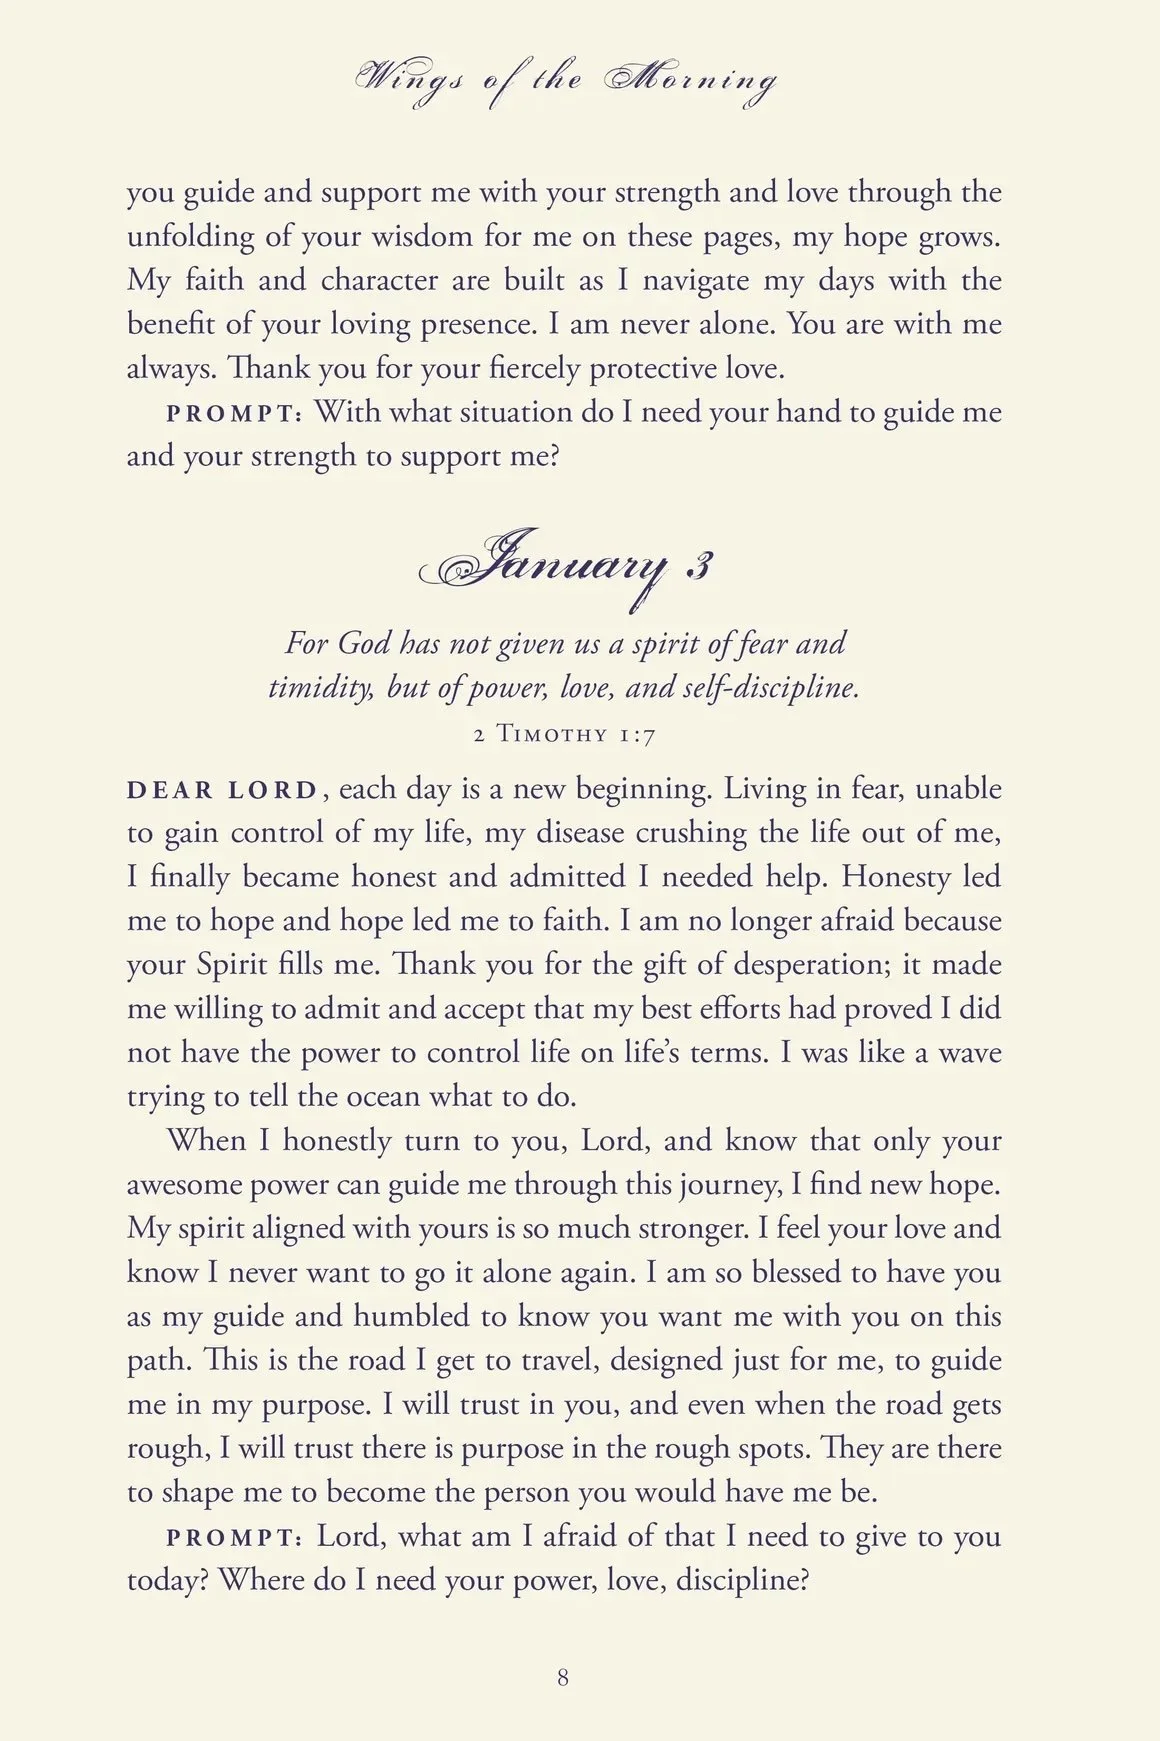 Wings of the Morning
you guide and support me with your strength and love through the
unfolding of your wisdom for me on these pages, my hope grows.
My faith and character are built as I navigate my days with the
benefit of your loving presence. I am never alone. You are with me
always. Thank you for your fiercely protective love.
PROMPT: With what situation do I need your hand to guide me
and your strength to support me?
January 3
For God has not given us a spirit of fear and
timidity, but of power, love, and self-discipline.
2 Timothy 1:7
DEAR LORD, each day is a new beginning. Living in fear, unable
to gain control of my life, my disease crushing the life out of me,
I finally became honest and admitted I needed help. Honesty led
me to hope and hope led me to faith. I am no longer afraid because
your Spirit fills me. Thank you for the gift of desperation; it made
me willing to admit and accept that my best efforts had proved I did
not have the power to control life on life’s terms. I was like a wave
trying to tell the ocean what to do.
When I honestly turn to you, Lord, and know that only your
awesome power can guide me through this journey, I find new hope.
My spirit aligned with yours is so much stronger. I feel your love and
know I never want to go it alone again. I am so blessed to have you
as my guide and humbled to know you want me with you on this
path. This is the road I get to travel, designed just for me, to guide
me in my purpose. I will trust in you, and even when the road gets
rough, I will trust there is purpose in the rough spots. They are there
to shape me to become the person you would have me be.
PROMPT: Lord, what am I afraid of that I need to give to you
today? Where do I need your power, love, discipline?
8